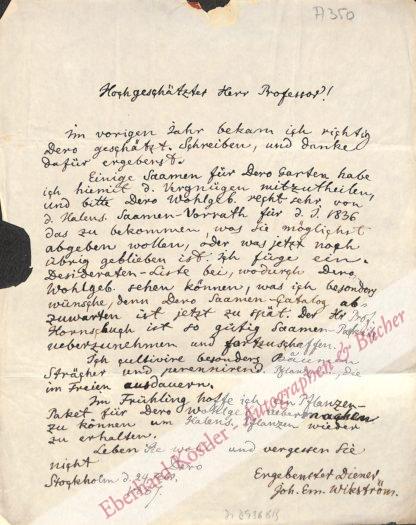 A350
Hochgeschätzter Herr Professor!
Im vorigen Jahr bekam ich richtig
Dero geschätzt. Schreiben, und danke
dafür ergebenst.
Einige Saamen für Dero Garten habe
ich hiermit d. Vrgnügen mitzutheilen,
und bitte Dero Wohlgeb. recht sehr von
d. Halens. Saamen-Vorrath für d. J. 1836
das zu bekommen, was Sie möglichst
abgeben wollen, oder was jetzt noch
übrig geblieben ist. Ich füge ein.
Desideraten-Liste bei, wodurch Dero
Wohlgeb. sehen können, was ich besonders
wünsche, denn Dero Saamen-Catalog ab-
zuwarten ist jetzt zu spät. Der Hr Prof.
Hornschuch ist so gütig Saamen
ueberzunehmen und fortzuschaffen.
Ich cultivire besonders Bäumen
Sträucher und perennirend. Pflanzen, die
im Freien ausdauern.
Im Frühling hoffe ich ein Pflanzen-
Paket für Dero Wohlgeb.
zu können um Halens. Pflanzen wieder
zu erhalten.
Leben Sie wohl und vergessen Sie
nicht Dero
Stockholm d. 24
Ergebenster Diener
Joh. Em. Wikström.
Eberhard Köstler - Autographen & Bücher